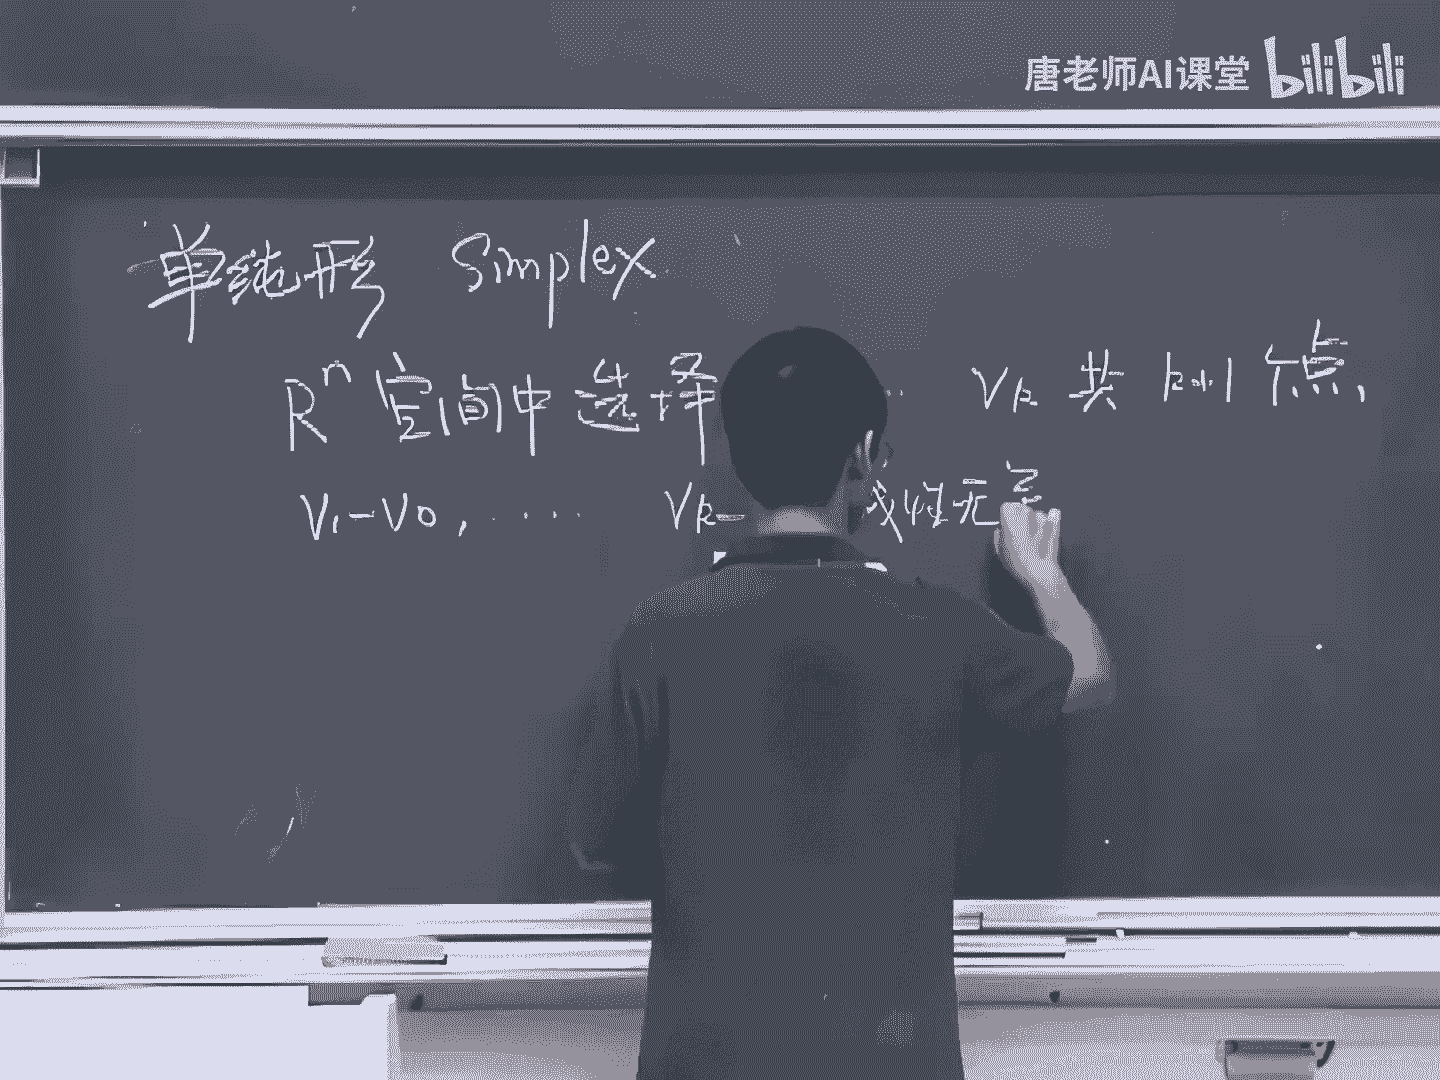 唐老师AI课堂 bilibili
单纯形 Simplex
R^n 空间中选择 ·· Vk 共 k+1 个点,
V1-V0, ···· Vk- 线性无